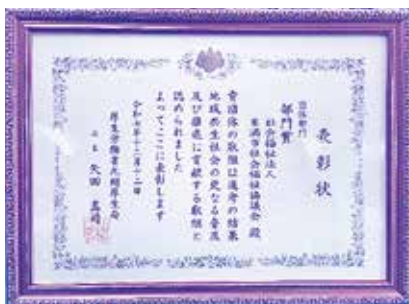 表彰状
団体部門
部門賞
社会福祉法人
社会福祉協議会 殿
貴団体の取組は選考の結果
地域共生社会の更なる普及
及び醸成に貢献する取組と
認められました
よってここに表彰します
令和七年十二月十二日
厚生労働省九州厚生局